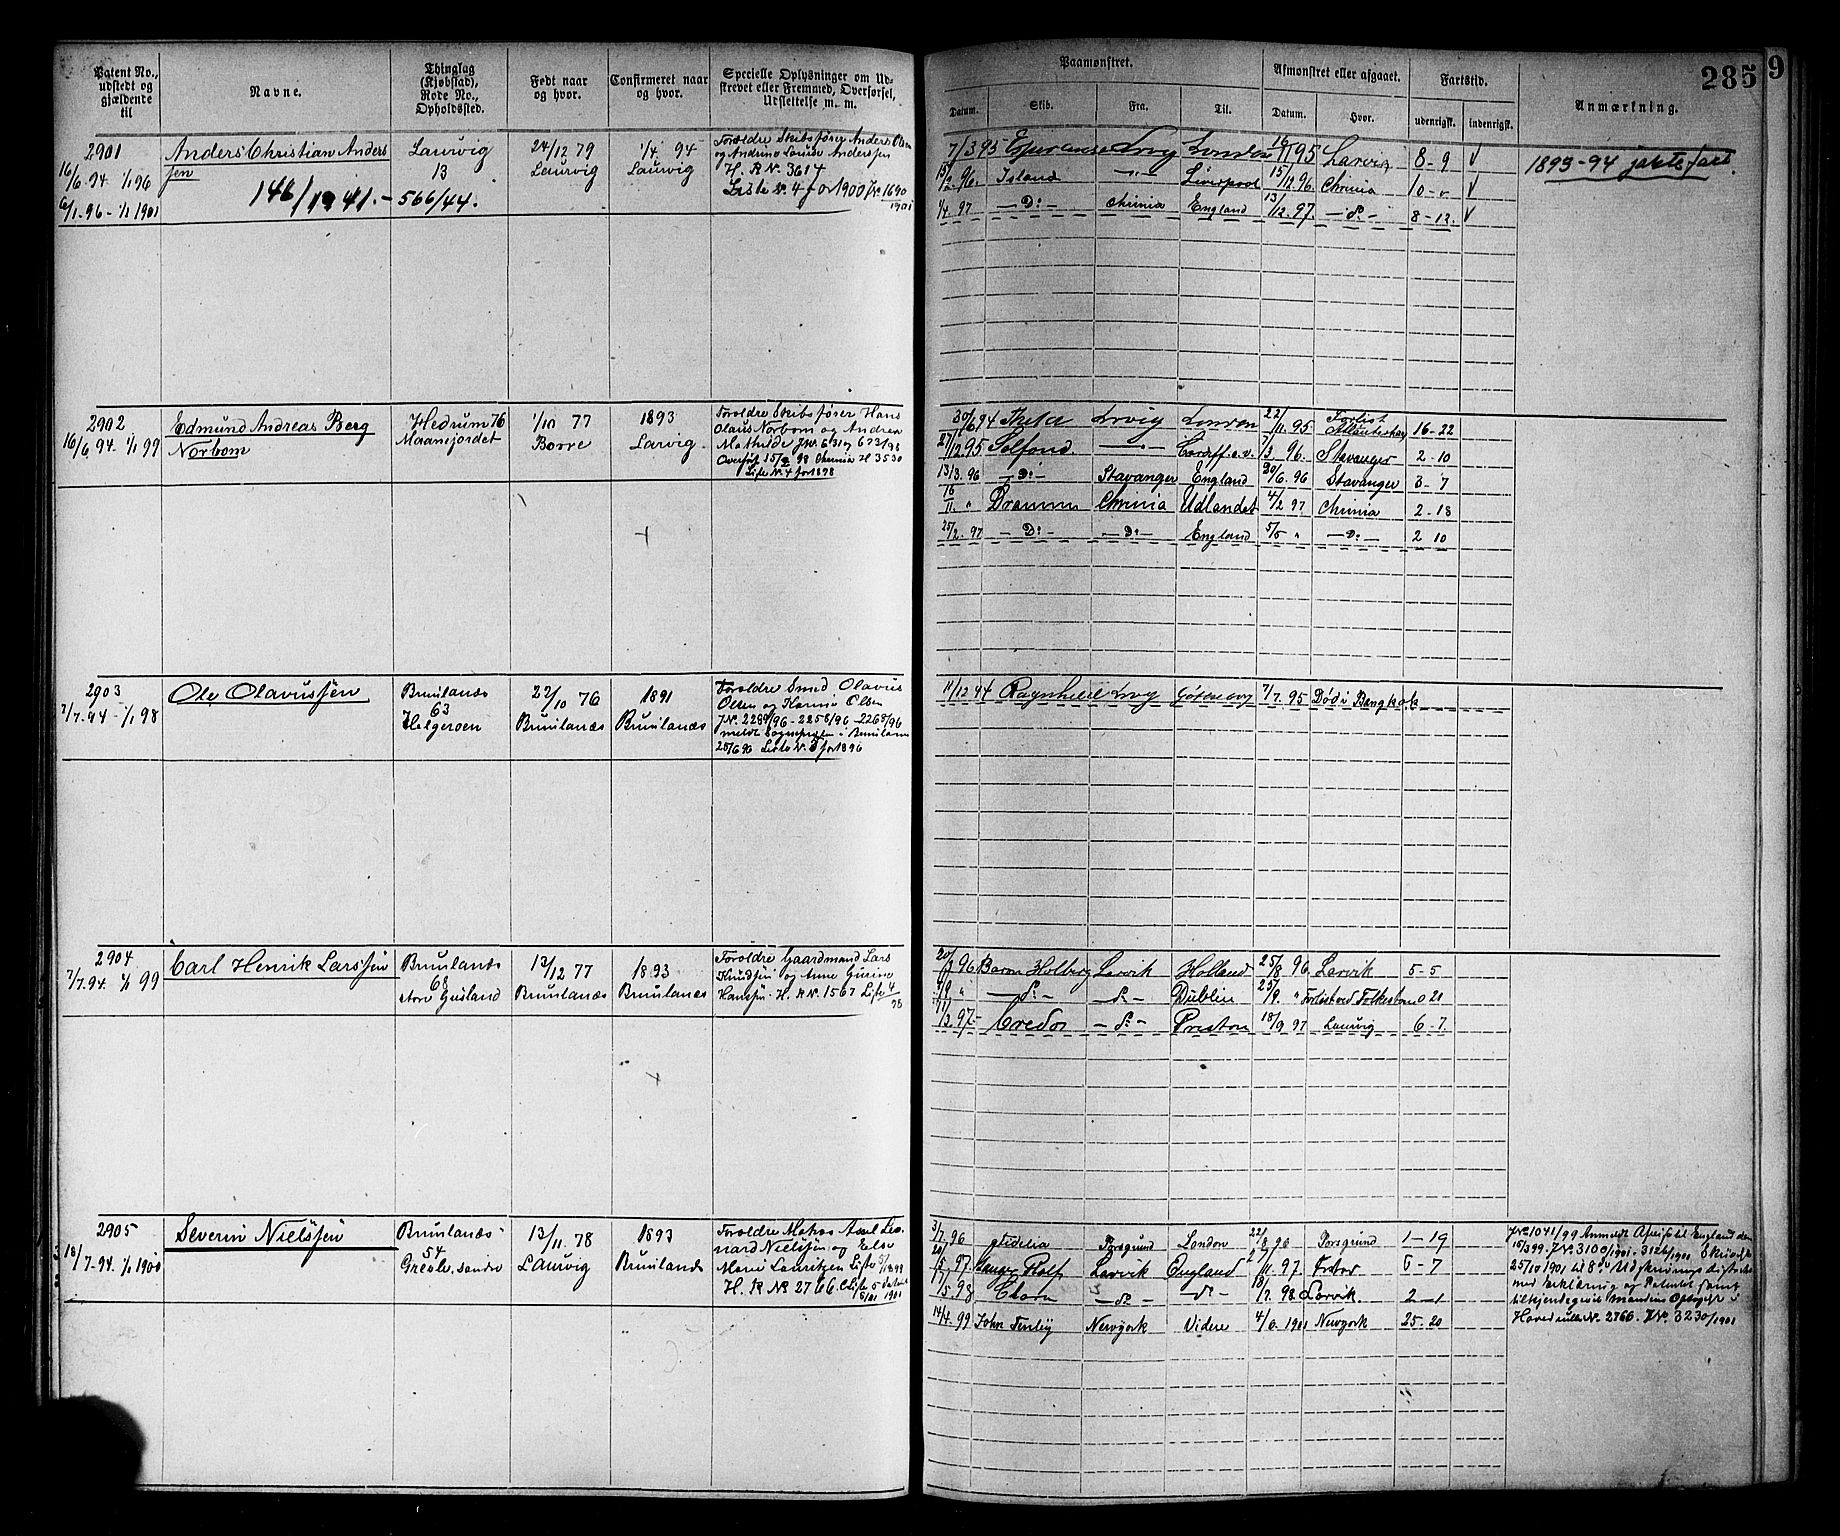 Patent No.,
udstedt og
gjældende
til
Navne.
Thinglag
(Kjøbstad),
Rode No.,
Opholdssted.
Født naar
og hvor.
Confirmeret naar
og hvor.
Specielle Oplysninger om Ud-
skrevet eller Fremmed, Overførsel,
Udslettelse m. m.
2901
16/6 94 1/1 96
6/1 96 - 1/1 1901
Anders Christian Anders
sen
146/1941. - 566/44.
Laurvig
13
24/12 79
Laurvig
1/4 94
Laurvig
Forældre Skibsfører Anders Olsen
og Andrine Louise Anderssen
H. R No. 3614
Liste No. 4 for 1900 JNo 1690
1901
2902
16/6 94 1/1 99
Edmund Andreas Berg
Norbom
Hedrum 76
Maanejordet
1/10 77
Borre
1893
Larvig
Foroldre Skibsfører Hans
Olaus Norbom og Andrea
Mathilde JNo 631 og 673/98
Overført 15/2 98 Chrinia H 3530
Liste No 4 for 1898
2903
7/7 94 - 1/1 98
Ole Olavussen
Brunlanæs
63
Helgeroen
22/10 76
Brunlanæs
1891
Brunlanæs
Foroldre Smed Olavus
Olsen og Olsen
JNo 2289/96 - 2258/96 - 2268/96
meldt Sognepresten i Brunlanæs
25/6 96 Liste No. 3 for 1896
2904
7/7 94 1/1 99
Carl Henrik Larssen
Brunlanæs
68
store Gusland
13/12 77
Brunlanæs
1893
Brunlanæs
Foroldre Gaardmand Lars
Knudsen og Anne
Hanssen H. R No. 1567 Liste 4/98
2905
18/7 94 1/1 1900
Severin Nielssen
Brunlanæs
54
søndre
13/11 78
Laurvig
1893
Brunlanæs
Foroldre Axel Leo-
nard Nielssen og Else
Marie Lauritzen Liste 5/1899
H. R No 2766
Paamønstret.
Afmønstret eller afgaaet.
Fartstid.
Anmærkning.
285
9
Datum.
Skib.
Fra.
Til.
Datum.
Hvor.
udenrigsk.
indenrigsk.
7/3 95 Esperanse Lrvig London 16/11 95 Larvig 8-9 V 1893-94 jagtefart.
15/2 96. Island —"— Liverpool 15/12 96 Chrinia 10-" V
1/4 97 —Do— Chrinia England 13/12 97. —do— 8-12. V
30/6 94 Thekla Lrvig London 22/11 95 Forlist
Atlanterhav 16-22
27/12 95 Solfond. —"— Cardiff o.v. 7/3 96. Stavanger 2-10
13/3 96 —Do— Stavanger England 20/6 96 Stavanger 3-7
16/11 " Drammen Chrinia Udlandet 4/2 97 Chrinia 2-18
25/2 97 —Do— —Do— England 5/5 " —Do— 2 10
11/12 94 Ragnhild Lrvig Göteborg 7/7 95 Død i Bangkok
20/3 96 Baron Holberg Larvik Holland 25/8 96 Larvik 5-5
" —do— —do— Dublin 25/9. " Forlist ved Folkestone 0 21
11/3 97- Credo —do— Preston 18/9 97 Laurvig 6-7.
3/7 96 Porsgrund London 22/8 96 Porsgrund 1-19
20/5 97. Rolf Larvik England 97. 6-7
17/5 98 Clara —do— —do— 18/7 98 Larvik. 2-1
14/4 99 John Newyork Videre 4/6 1901 Newyork 25-20
JNo 1041/99 Anmeldt Afreise til England den
15/3 99. JNo 3100/1901. 3126/1901
25/10 1901 til 8de Udskrivningsdistrikt
med Erklæring og Patentet samt
tilkjendegivet mandens Optagelse i
Hovedrulle No. 2766. JNo. 3230/1901